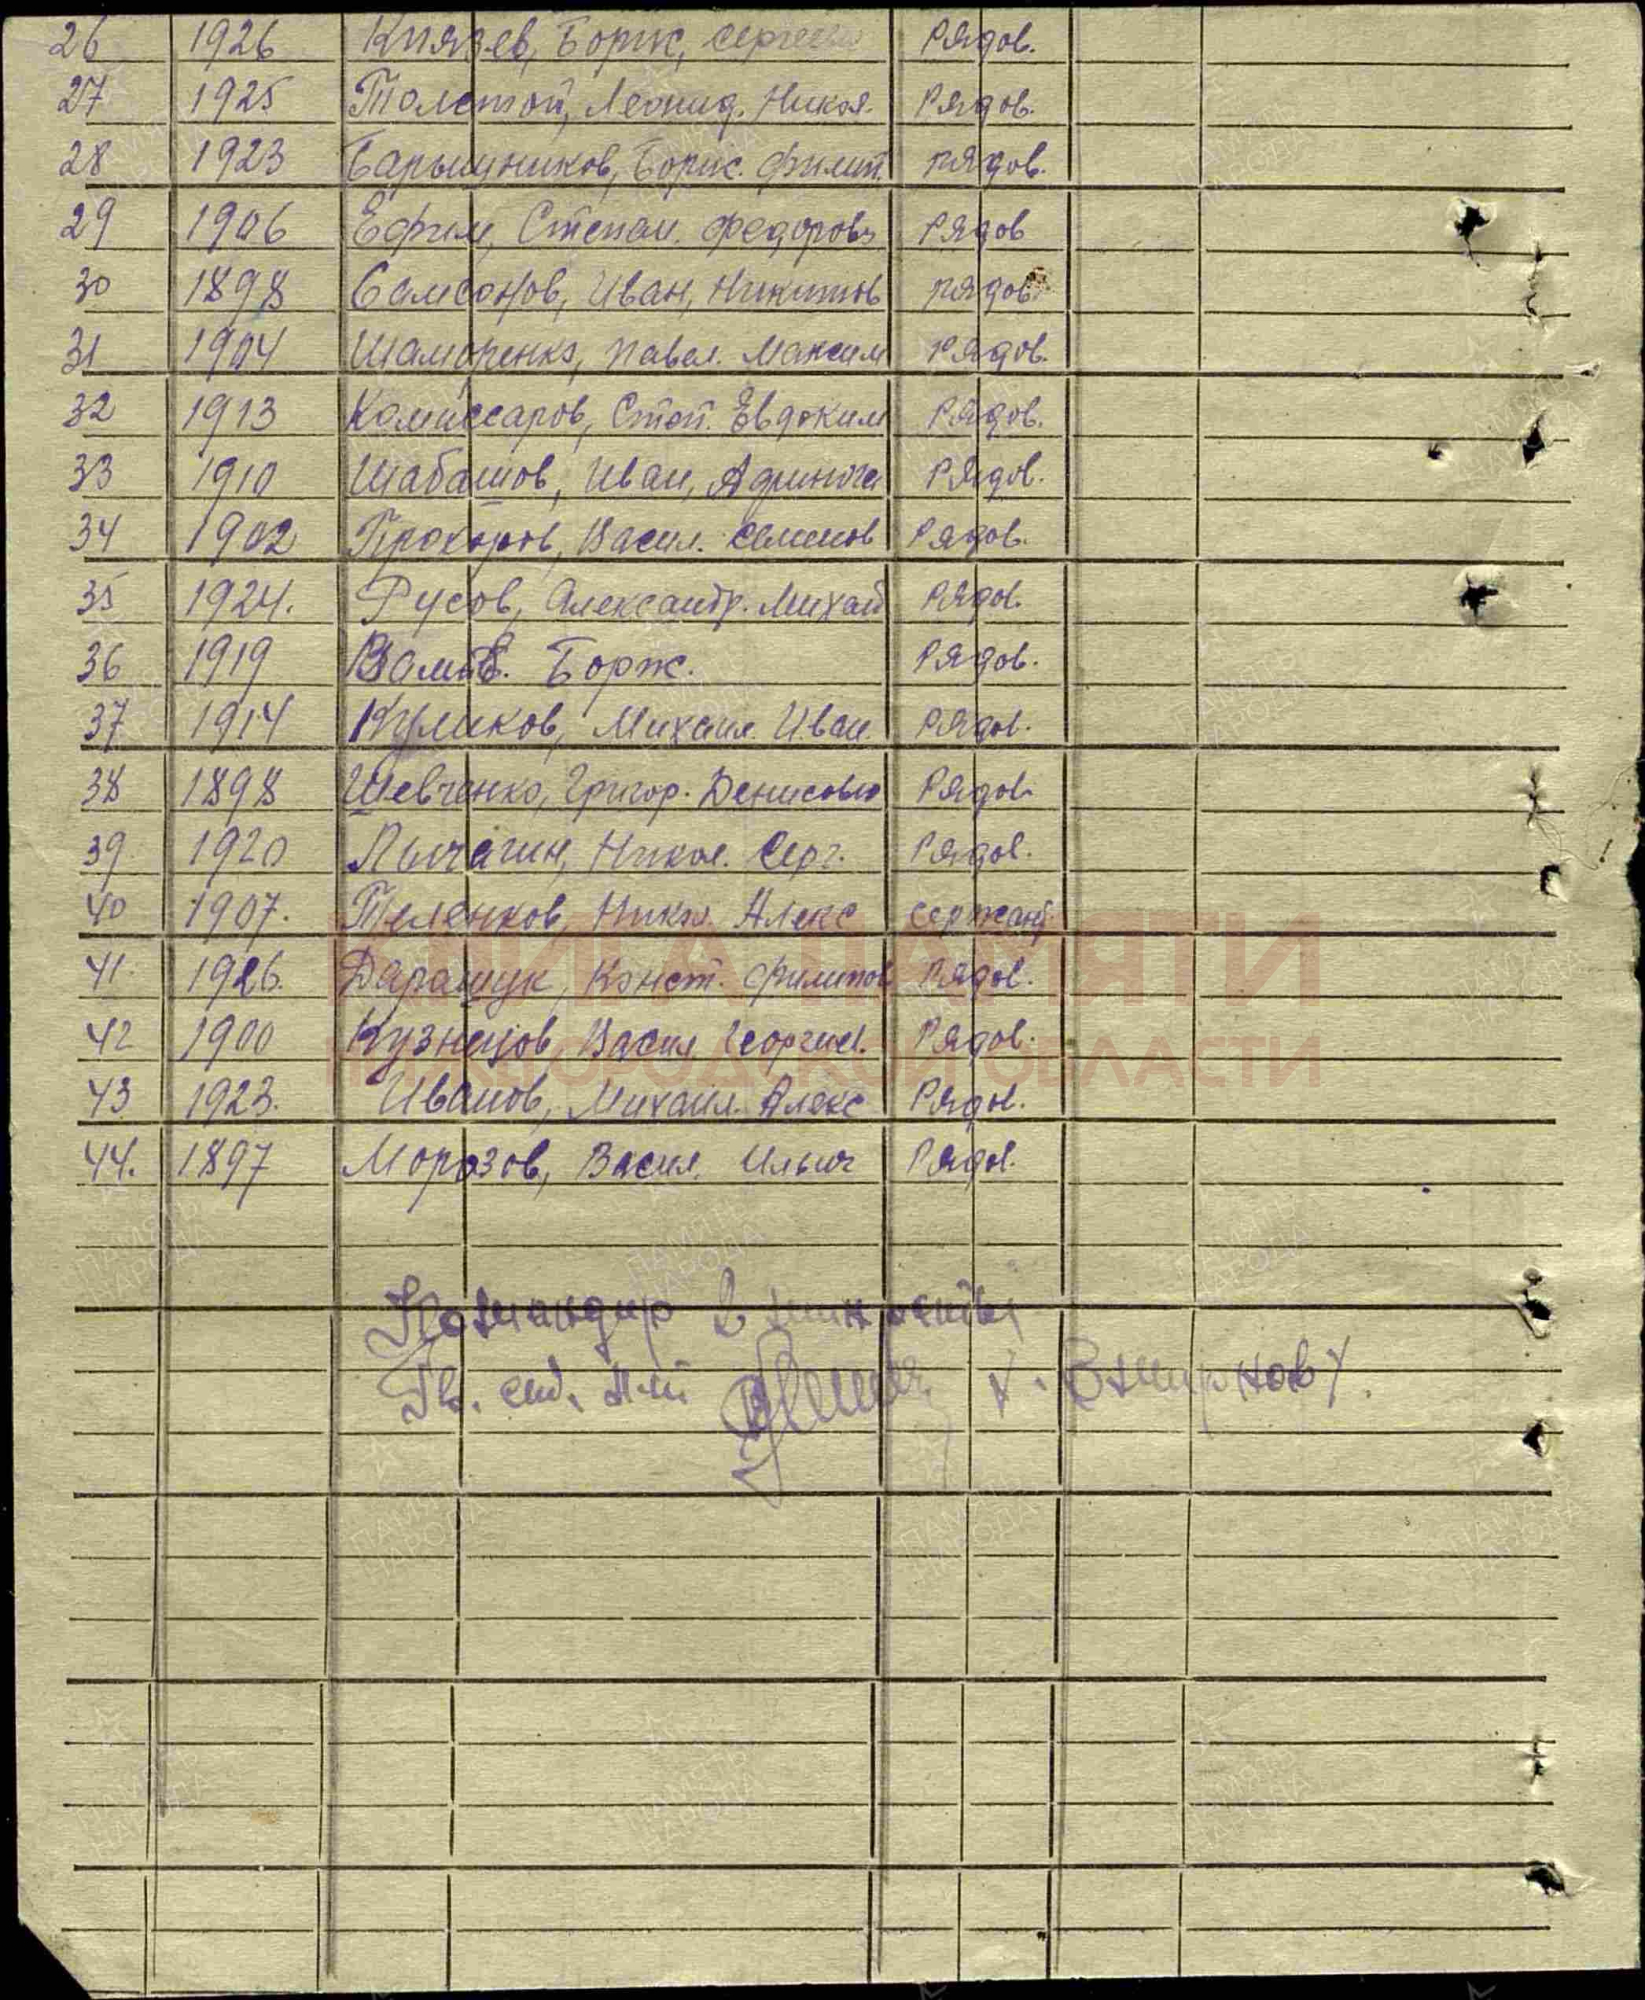 26 1926 Князев, Борис, Сергеев Рядов.
27 1925 Толстой, Леонид. Никол. Рядов.
28 1923 Барышников, Борис. Филип. рядов.
29 1906 Ефрем, Степан. Федоров Рядов
30 1898 Самсонов, Иван, Никитов рядов.
31 1904 Шаморенко, Павел. Максим Рядов.
32 1913 Комиссаров, Степ. Евдоким Рядов.
33 1910 Шабашов, Иван, Рядов.
34 1902 Прохоров, Васил. Семенов Рядов.
35 1924. Русов, Александр. Михай Рядов.
36 1919 Борис. Рядов.
37 1914 Куликов, Михаил. Иван. Рядов.
38 1898 Шевченко, Григор. Денисович Рядов.
39 1920 Лычагин, Никол. Серг. Рядов.
40 1907. Теленков, Никол. Алекс сержант.
41. 1926. Даращук, Конст. Филипов Рядов.
42 1900 Кузнецов Васил Георгиев. Рядов.
43 1923. Иванов, Михаил. Алекс Рядов.
44. 1897 Морозов, Васил. Ильич Рядов.
КНИГА ПАМЯТИ
НИЖЕГОРОДСКОЙ ОБЛАСТИ
Командир 2 мин роты
Гв. л-т
ПАМЯТЬ НАРОДА